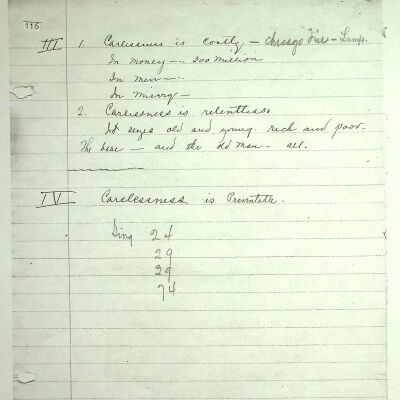 116
III 1. Carlessness is costly - Chicago Fire - Lamp.
In money - 200 million
In men - ..
In misery -
2. Carlessness is relentless.
It seizes old and young rich and poor.
The babe - and the old man - all.
IV Carelessness is Preventable -
Sing 24
29
29
74